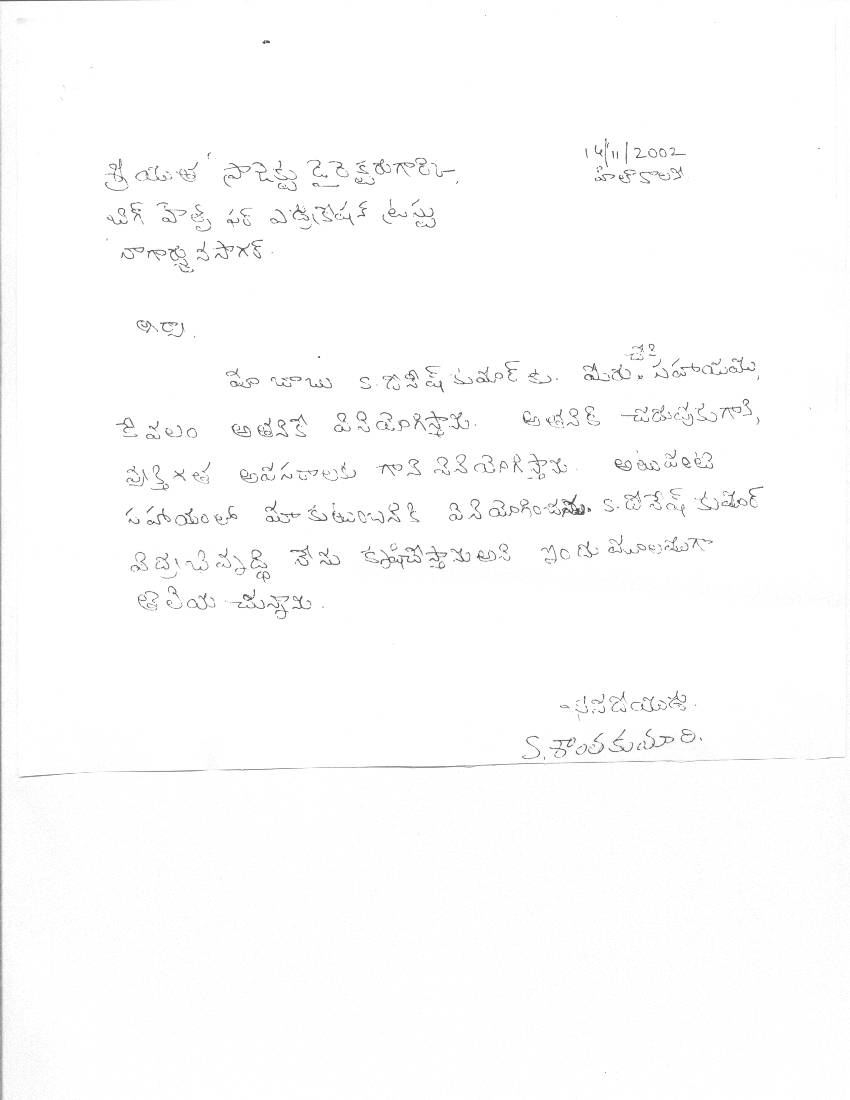 14/11/2002
హిల్ కాలని
శ్రీయుత ప్రాజెక్టు డైరెక్టరుగారికి,
బిగ్ హెల్ప్ ఫర్ ఎడ్యుకేషన్ ట్రస్టు
నాగార్జునసాగర్.
అర్యా.
మా బాబు S. దినేష్ కుమార్ కు. మీరు చేసే సహాయము,
కేవలం అతనికే వినియోగిస్తాను. అతనికి చదువుకుగాని,
వ్యక్తిగత అవసరాలకు గాని వినియోగిస్తాను. అటువంటి
సహాయంలో మాకుటుంబనికి వినియోగించను. S. దినేష్ కుమార్
విద్యాభివృద్ధి నేను కృషిచేస్తాను అని ఇందు మూలముగా
తెలియ చున్నాను.
S. శాంతకుమారి.